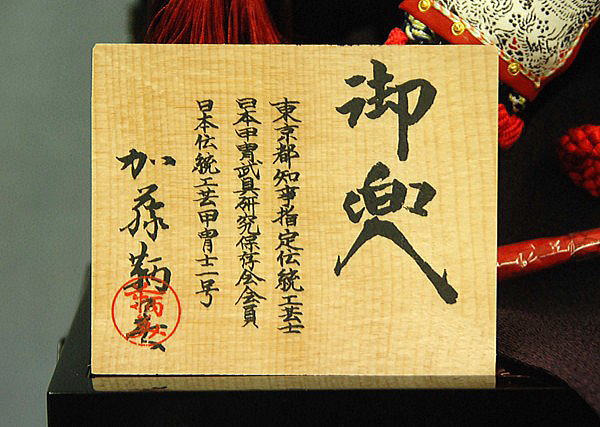 御兜
東京都知事指定伝統工芸士
日本甲冑武具研究保存会会員
日本伝統工芸甲冑士一号
加藤鞆美